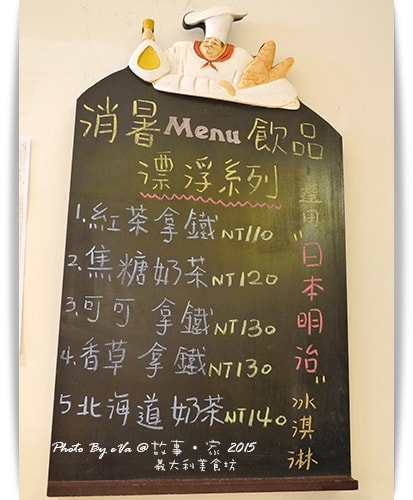 消暑Menu飲品
漂浮系列
1.紅茶拿鐵NT110
2.焦糖奶茶NT120
3.可可 拿鐵NT130
4.香草 拿鐵NT130
5北海道奶茶NT140
選用"日本明治"冰淇淋
Photo By eVa @ 故事‧家 2015
義大利美食坊